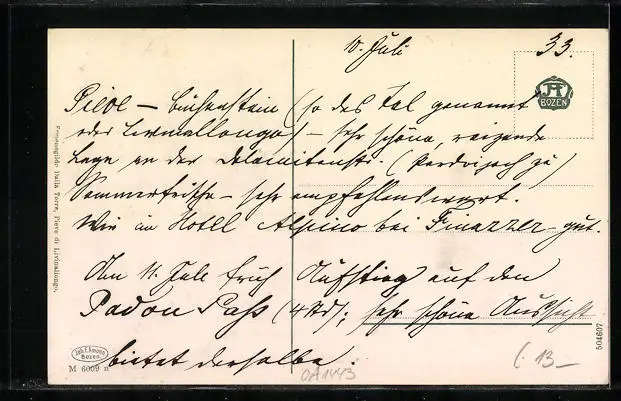 10. Juli 33.
Pieve – Buchenstein (so das Tal genannt
oder Livinallongo) – sehr schöne, reizende
Lage an der Dolomitenstr. (Pordoijoch zu)
Sommerfrische – sehr empfehlenswert.
Wir im Hotel Alpino bei Finazzer gut.
Am 11. Juli früh Aufstieg auf den
Padon Pass (4 Std); sehr schöne Aussicht
bietet derselbe.
BOZEN
Italia Terza, Pieve di Livinallongo.
Joh. F. Amonn
Bozen.
M 6009 n
504607
0A1443
13–